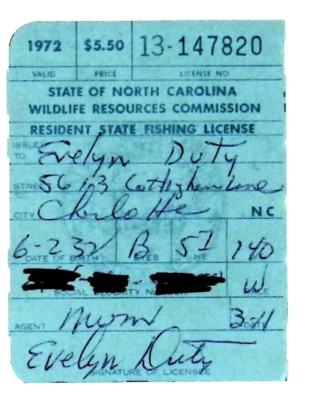 1972 $5.50 13-147820
VALID PRICE LICENSE NO
STATE OF NORTH CAROLINA
WILDLIFE RESOURCES COMMISSION
RESIDENT STATE FISHING LICENSE
ISSUED TO Evelyn Duty
STREET 5613
CITY Charlotte NC
6-2 32 B 51 140
DATE OF BIRTH EYES HT
SOCIAL SECURITY NUMBER W
AGENT
Evelyn Duty
SIGNATURE OF LICENSEE